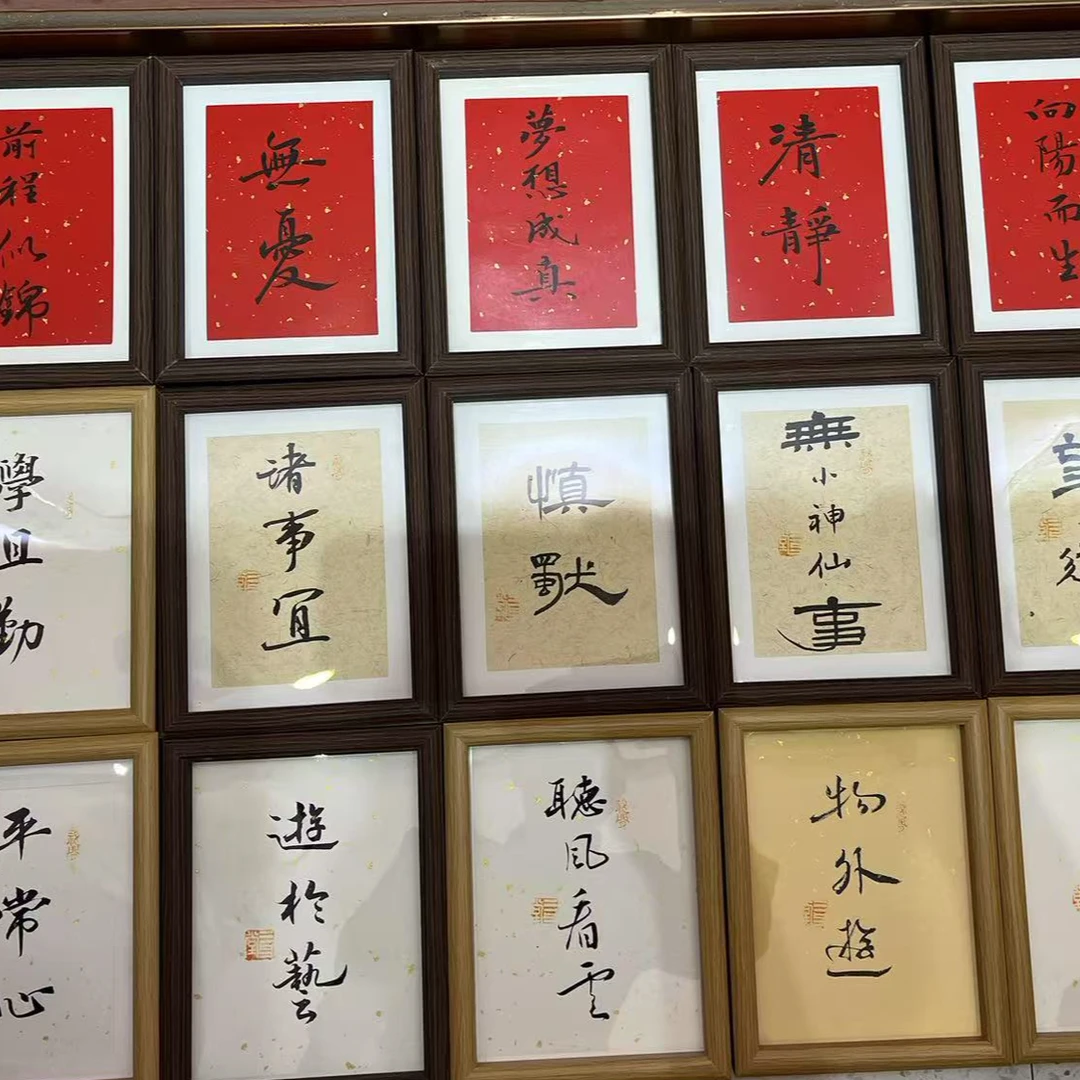 前程似錦
無憂
夢想成真
清靜
向陽而生
學且勤
诸事宜
慎獨
無小神仙事
平常心
遊於藝
聽風看雲
物外遊